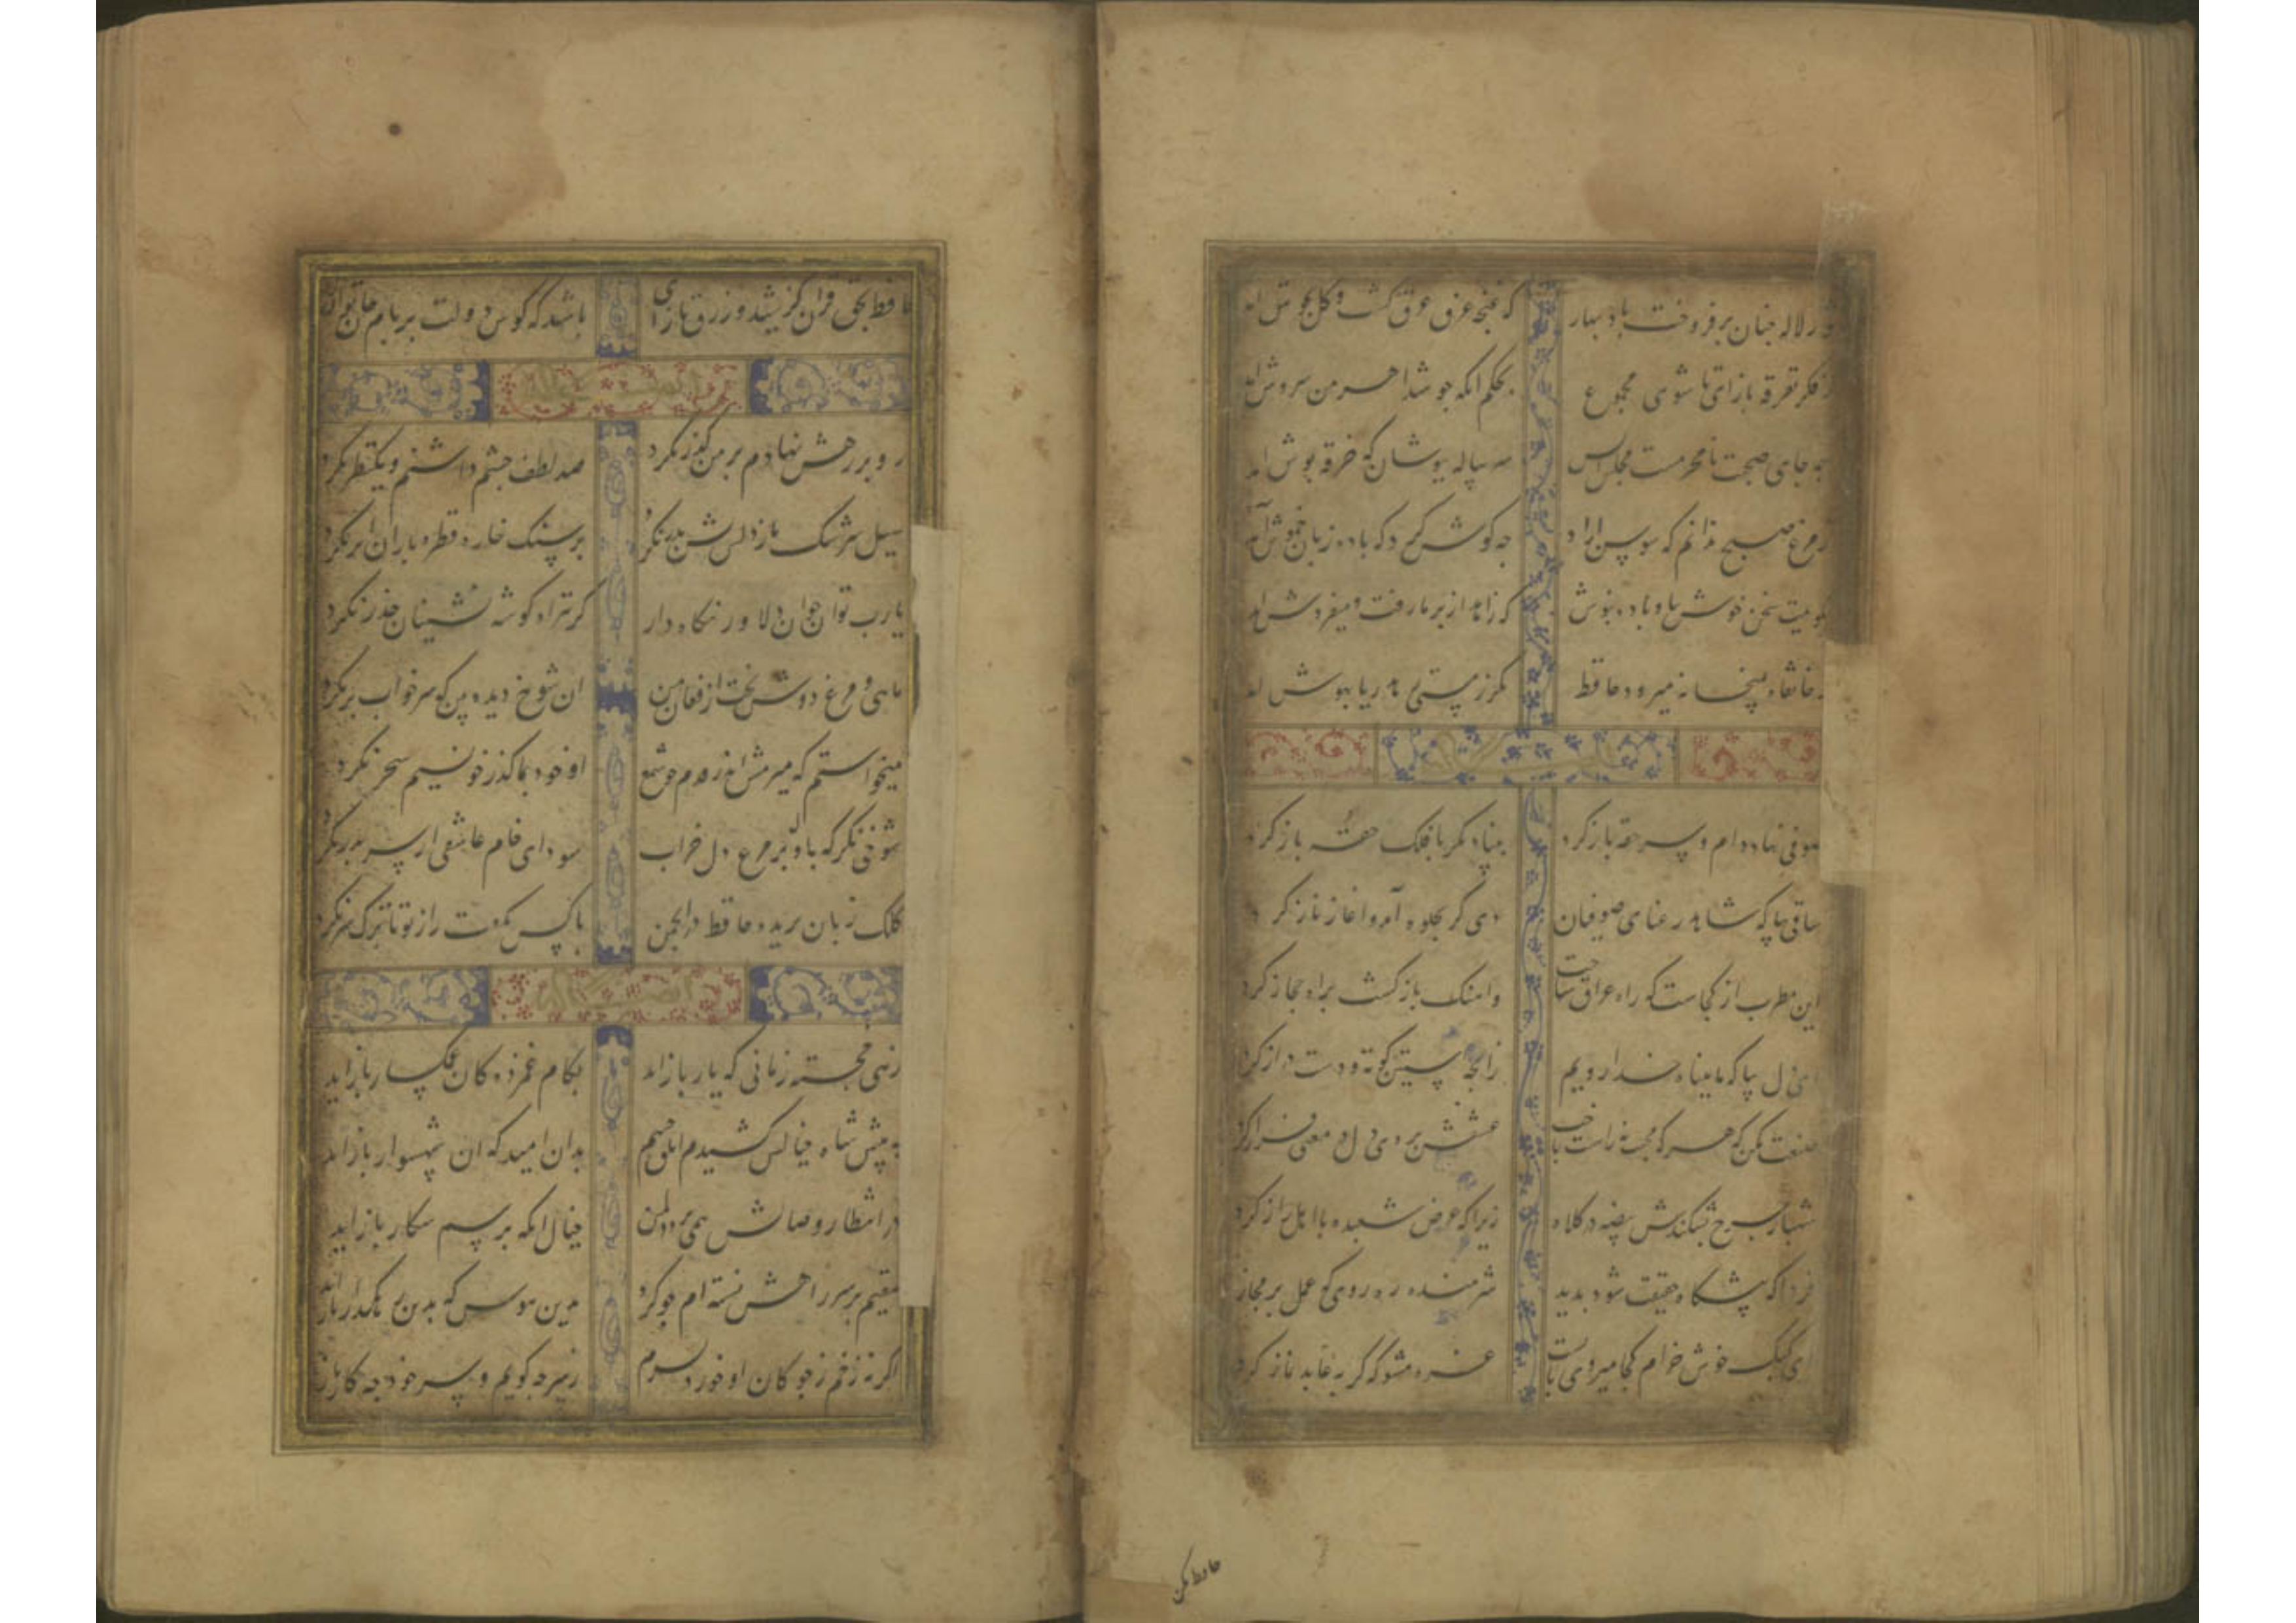 تنور لاله چنان برفروخت باد بهار که غنچه غرق عرق کشت و کل بجوش امد
ز فکر تفرقه بازآی تا شوی مجموع بحکم انکه جو شد اهرمن سروش امد
چه جای صحبت نامحرمست مجلس انس سر پیاله بپوشان که خرقه پوش امد
ز مرغ صبح ندانم که سوسن ازاد چه کوش کرد که با ده زبان خموش آمد
بکویمت سخن خوش بیا و باده بنوش که زاهد از بر ما رفت و میفروش امد
ز خانقاه بمیخانه میرود حافظ مکر ز مستی زهد ریا بهوش امد
صوفی نهاد دام و سر حقه باز کرد بنیاد مکر با فلک حقه باز کرد
ساقی بیا که شاهد رعنای صوفیان دیگر بجلوه آمد و اغاز ناز کرد
این مطرب از کجاست که راه عراق ساخت واهنک بازکشت براه حجاز کرد
ای دل بیا که ما بپناه خدا رویم زانچه آستین کوته و دست دراز کرد
صنعت مکن که هر که محبت نه راست باخت عشقش بروی دل در معنی فراز کرد
چرخ بشکندش بیضه در کلاه زیرا که عرض شعبده با اهل راز کرد
فردا که پیشکاه حقیقت شود بدید شرمنده ره روی که عمل بر مجاز کرد
ای کبک خوش خرام کجا میروی بایست غره مشو که کربه عابد نماز کرد
حافظ مکن
حافظ بحق قران کز شید و زرق بازای باشد که کوی دولت
رو بر رهش نهادم و بر من کذر نکرد صد لطف چشم داشتم و یکنظر نکرد
سیل سرشک ما ز دلش کین بدر نکرد بر سنک خاره قطره باران اثر نکرد
یارب تو ان جوان دلاور نکاه دار کز تیر اه کوشه نشینان حذر نکرد
ماهی و مرغ دوش نخفت از فغان من ان شوخ دیده بین که سر خواب برنکرد
میخواستم که میرمش اندر قدم چو شمع او خود بما کذر چو نسیم سحر نکرد
شوخی نکر که با او مرغ دل خراب سودای خام عاشقی از سر بدر نکرد
کلک زبان بریده حافظ در انجمن با کس نکفت راز تو تا ترک سر نکرد
زهی خجسته زمانی که یار بازاید بکام غمزدکان غمکسار بازاید
به پیش شاه خیالش کشیدم ابلق چشم بدان امید که ان شهسوار بازاید
در انتظار وصالش همی برد دل من خیال انکه برسم شکار بازاید
مقیم بر سر راهش نشسته ام چو کرد بدین هوس که بدین رهکذار بازاید
اکر نه زخم ز چوکان او خورد سرم ز سر چه کویم و سر خود چه کار